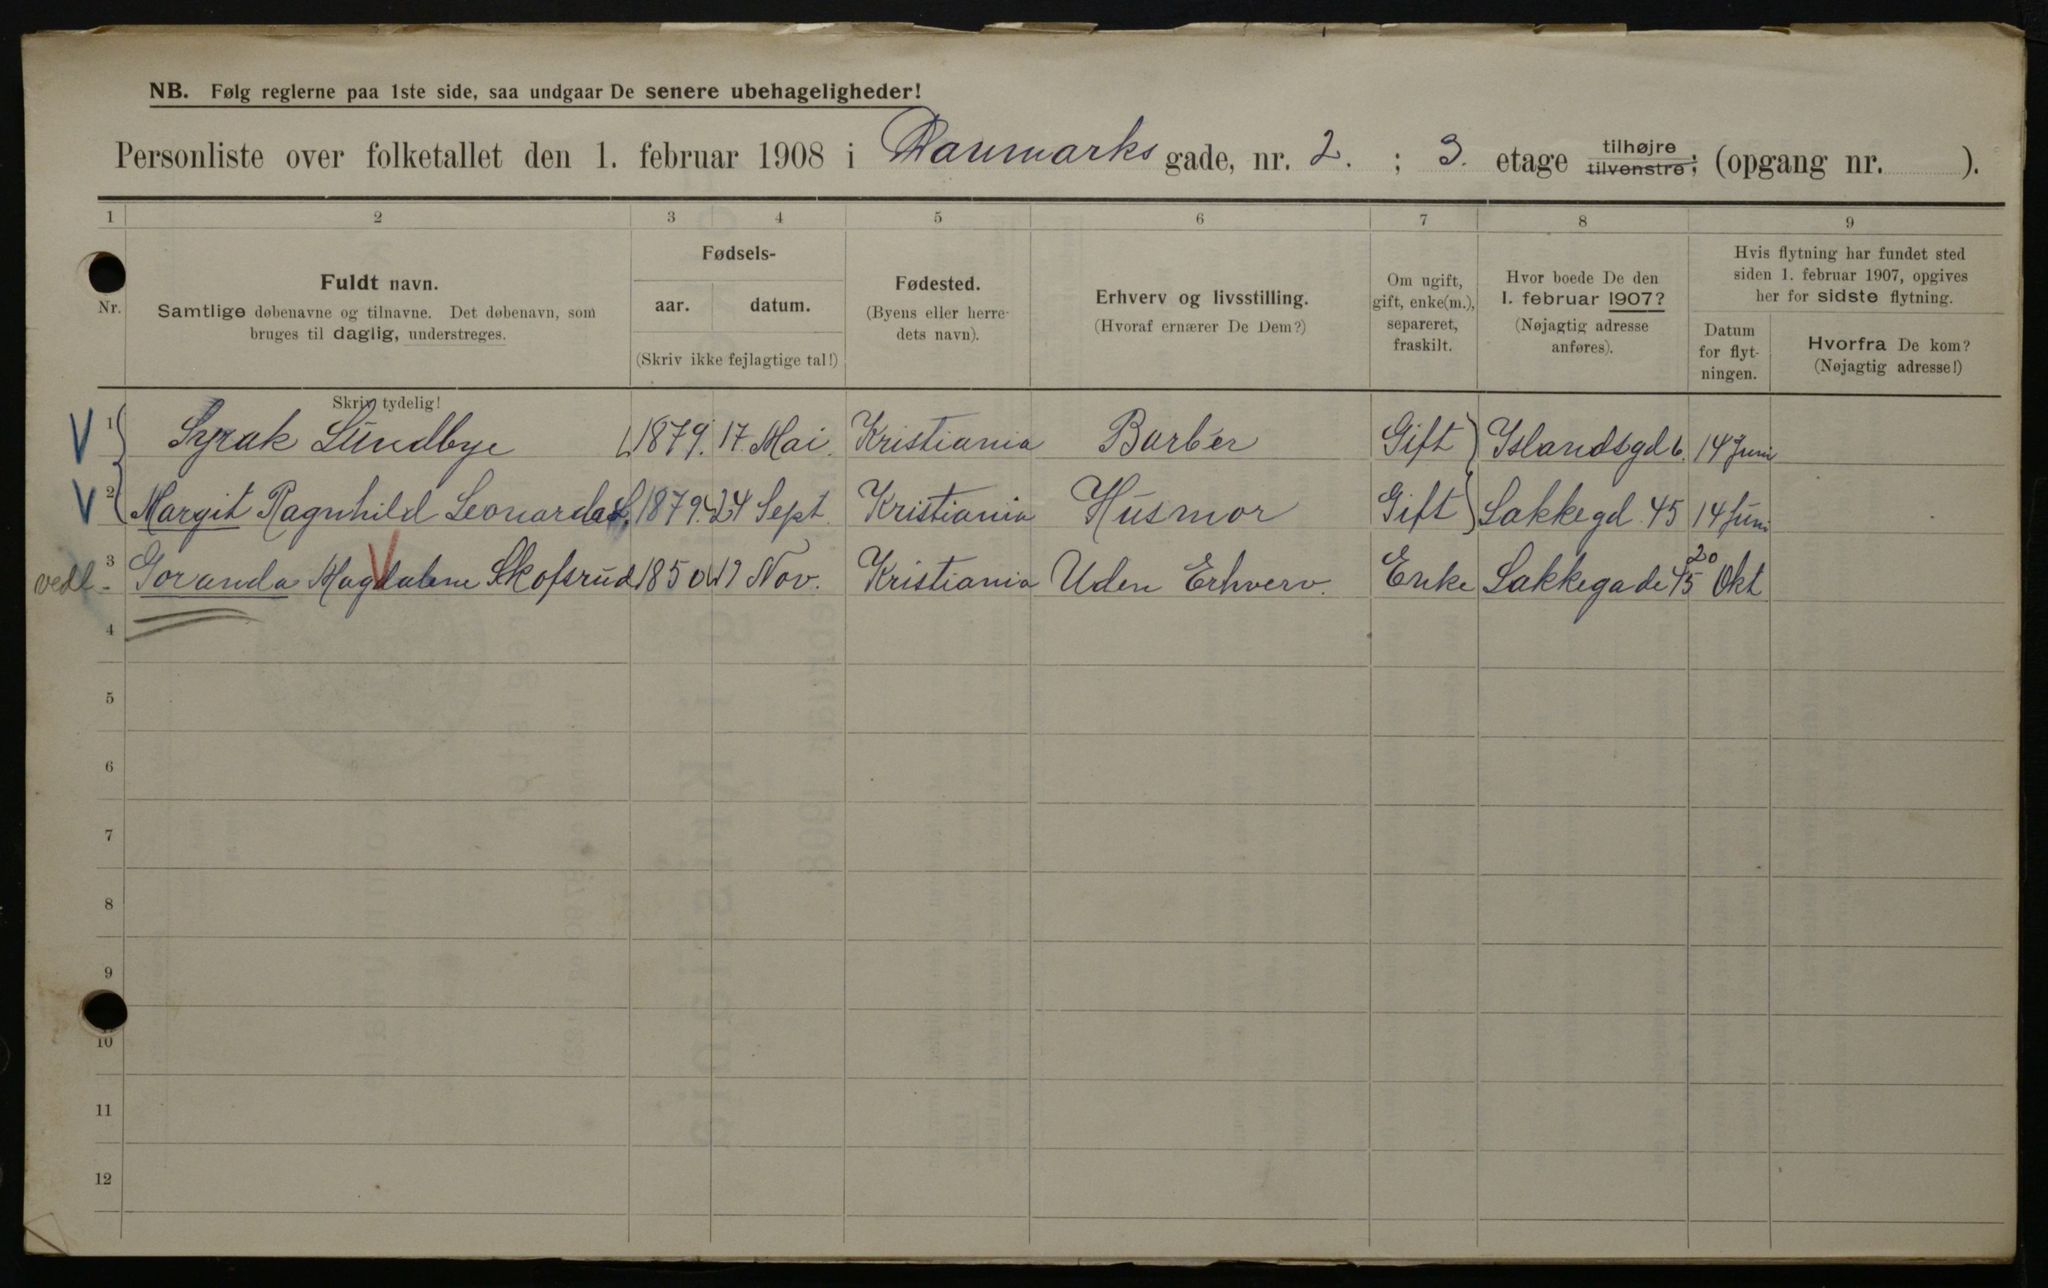 NB. Følg reglerne paa 1ste side, saa undgaar De senere ubehageligheder!
Personliste over folketallet den 1. februar 1908 i Danmarks gade, nr. 2. ; 3. etage tilhøjre tilvenstre; (opgang nr. ).
1 2 3 4 5 6 7 8 9
Nr.
Fuldt navn.
Samtlige døbenavne og tilnavne. Det døbenavn, som
bruges til daglig, understreges.
Skriv tydelig!
Fødsels-
aar. datum.
(Skriv ikke fejlagtige tal!)
Fødested.
(Byens eller herre-
dets navn).
Erhverv og livsstilling.
(Hvoraf ernærer De Dem?)
Om ugift,
gift, enke(m.),
separeret,
fraskilt.
Hvor boede De den
1. februar 1907?
(Nøjagtig adresse
anføres).
Hvis flytning har fundet sted
siden 1. februar 1907, opgives
her for sidste flytning.
Datum
for flyt-
ningen.
Hvorfra De kom?
(Nøjagtig adresse!)
V 1 Syrak Lundbye 1879. 17. Mai. Kristiania Barber Gift Islandsgd 6. 14 Juni
V 2 Margit Ragnhild Leonarda L. 1879. 24 Sept. Kristiania Husmor Gift Lakkegd. 45 14 Juni
vedl. 3 Goranda Magdalene Skofsrud 1850 19 Nov. Kristiania Uden Erhverv. Enke Lakkegade 45 20 Okt
4
5
6
7
8
9
10
11
12